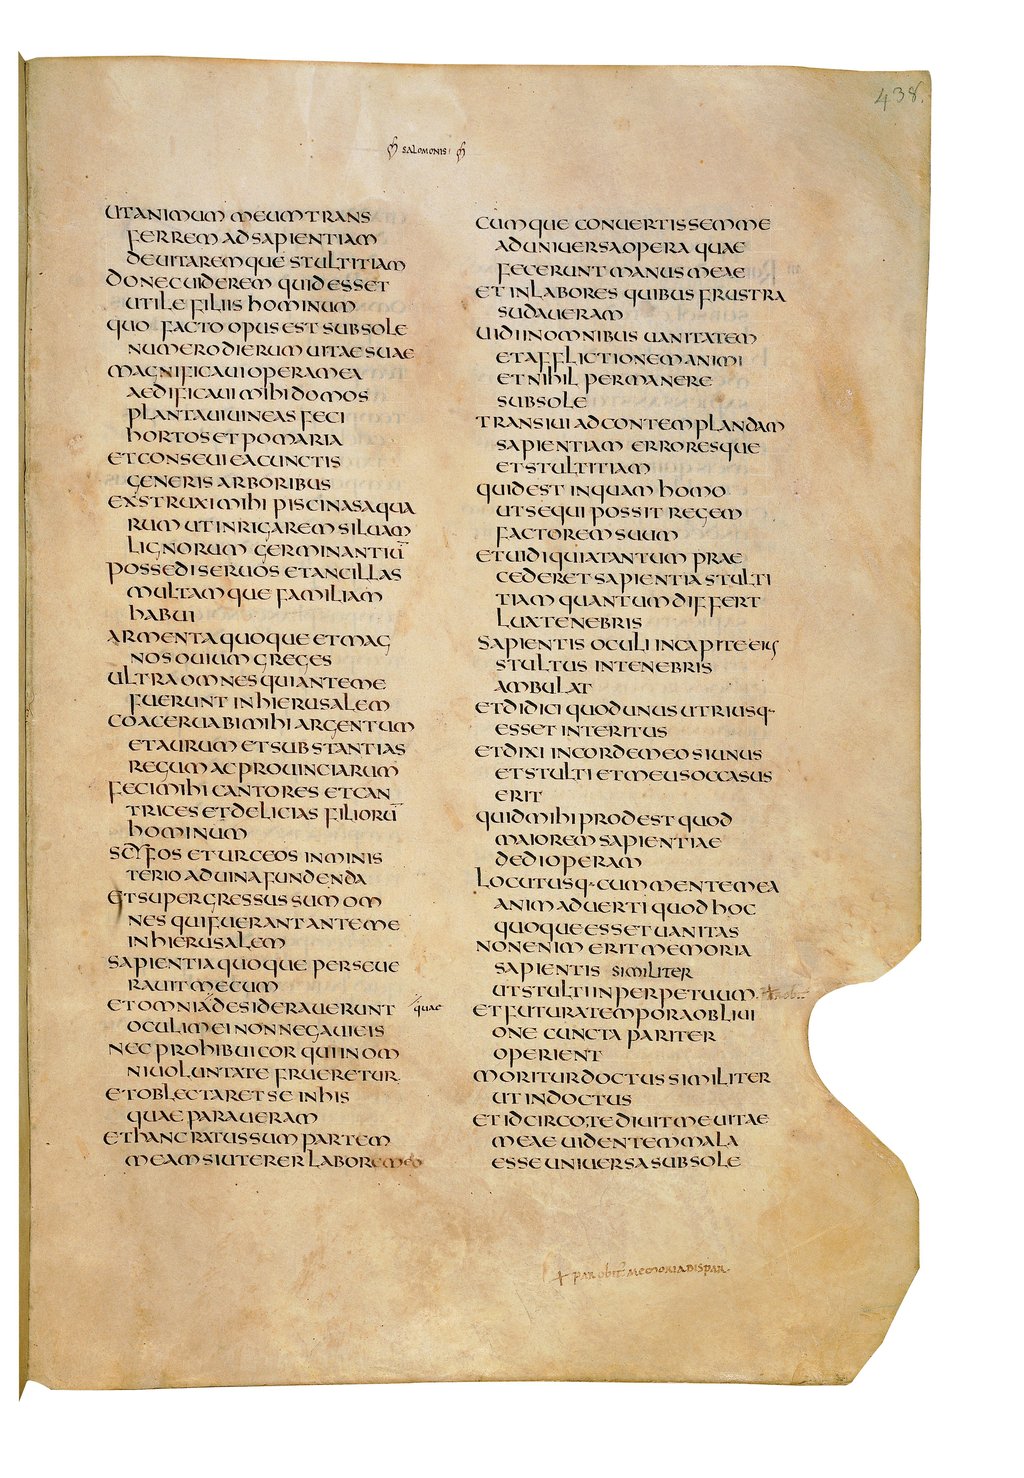 438.
SALOMONIS
UTANIMUM MEUMTRANS
FERREM ADSAPIENTIAM
DEUITAREMQUE STULTITIAM
DONECUIDEREM QUIDESSET
UTILE FILIIS HOMINUM
QUO FACTO OPUSEST SUBSOLE
NUMERODIERUM UITAESUAE
MAGNIFICAUIOPERAMEA
AEDIFICAUI MIHIDOMOS
PLANTAUIUINEAS FECI
HORTOSETPOMARIA
ETCONSEUI EACUNCTIS
GENERIS ARBORIBUS
EXSTRUXIMIHI PISCINASAQUA
RUM UTINRIGAREMSILUAM
LIGNORUM GERMINANTIŪ
POSSEDISERUOS ETANCILLAS
MULTAMQUE FAMILIAM
HABUI
ARMENTAQUOQUEETMAG
NOSOUIUMGREGES
ULTRAOMNESQUIANTEME
FUERUNT INHIERUSALEM
COACERUABIMIHI ARGENTUM
ETAURUM ETSUBSTANTIAS
REGUMACPROUINCIARUM
FECIMIHI CANTORES ETCAN
TRICES ETDELICIAS FILIORŪ
HOMINUM
SCYFOS ETURCEOS INMINIS
TERIOADUINAFUNDENDA
ETSUPERGRESSUSSUM OM
NES QUIFUERANTANTEME
INHIERUSALEM
SAPIENTIAQUOQUE PERSEUE
RAUITMECUM
ETOMNIADESIDERAUERUNT quae
OCULIMEINONNEGAUIEIS
NECPROHIBUICOR QUIINOM
NIUOLUNTATE FRUERETUR
ETOBLECTARETSE INHIS
QUAE PARAUERAM
ETHANCRATUSSUM PARTEM
MEAMSIUTERERLABOREMEO
CUMQUE CONUERTISSEMME
ADUNIUERSAOPERA QUAE
FECERUNT MANUS MEAE
ET INLABORES QUIBUS FRUSTRA
SUDAUERAM
UIDIINOMNIBUS UANITATEM
ETAFFLICTIONEMANIMI
ETNIHIL PERMANERE
SUBSOLE
TRANSIUIADCONTEMPLANDAM
SAPIENTIAM ERRORESQUE
ETSTULTITIAM
QUIDEST INQUAM HOMO
UTSEQUI POSSIT REGEM
FACTOREMSUUM
ETUIDIQUIATANTUM PRAE
CEDERETSAPIENTIASTULTI
TIAM QUANTUMDIFFERT
LUXTENEBRIS
SAPIENTIS OCULI INCAPITEEIUS
STULTUS INTENEBRIS
AMBULAT
ETDIDICI QUODUNUSUTRIUSQ·
ESSET INTERITUS
ETDIXI INCORDEMEOSIUNUS
ETSTULTI ETMEUSOCCASUS
ERIT
QUIDMIHIPRODESTQUOD
MAIOREMSAPIENTIAE
DEDIOPERAM
LOCUTUSQ·CUMMENTEMEA
ANIMADUERTI QUOD HOC
QUOQUEESSETUANITAS
NONENIM ERITMEMORIA
SAPIENTIS SIMILITER
UTSTULTIINPERPETUUM
ETFUTURATEMPORAOBLIUI
ONE CUNCTA PARITER
OPERIENT
MORITURDOCTUSSIMILITER
UTINDOCTUS
ETIDCIRCOTEDIUITMEUITAE
MEAE UIDENTEMMALA
ESSEUNIUERSASUBSOLE
MEMORIADISPAR·